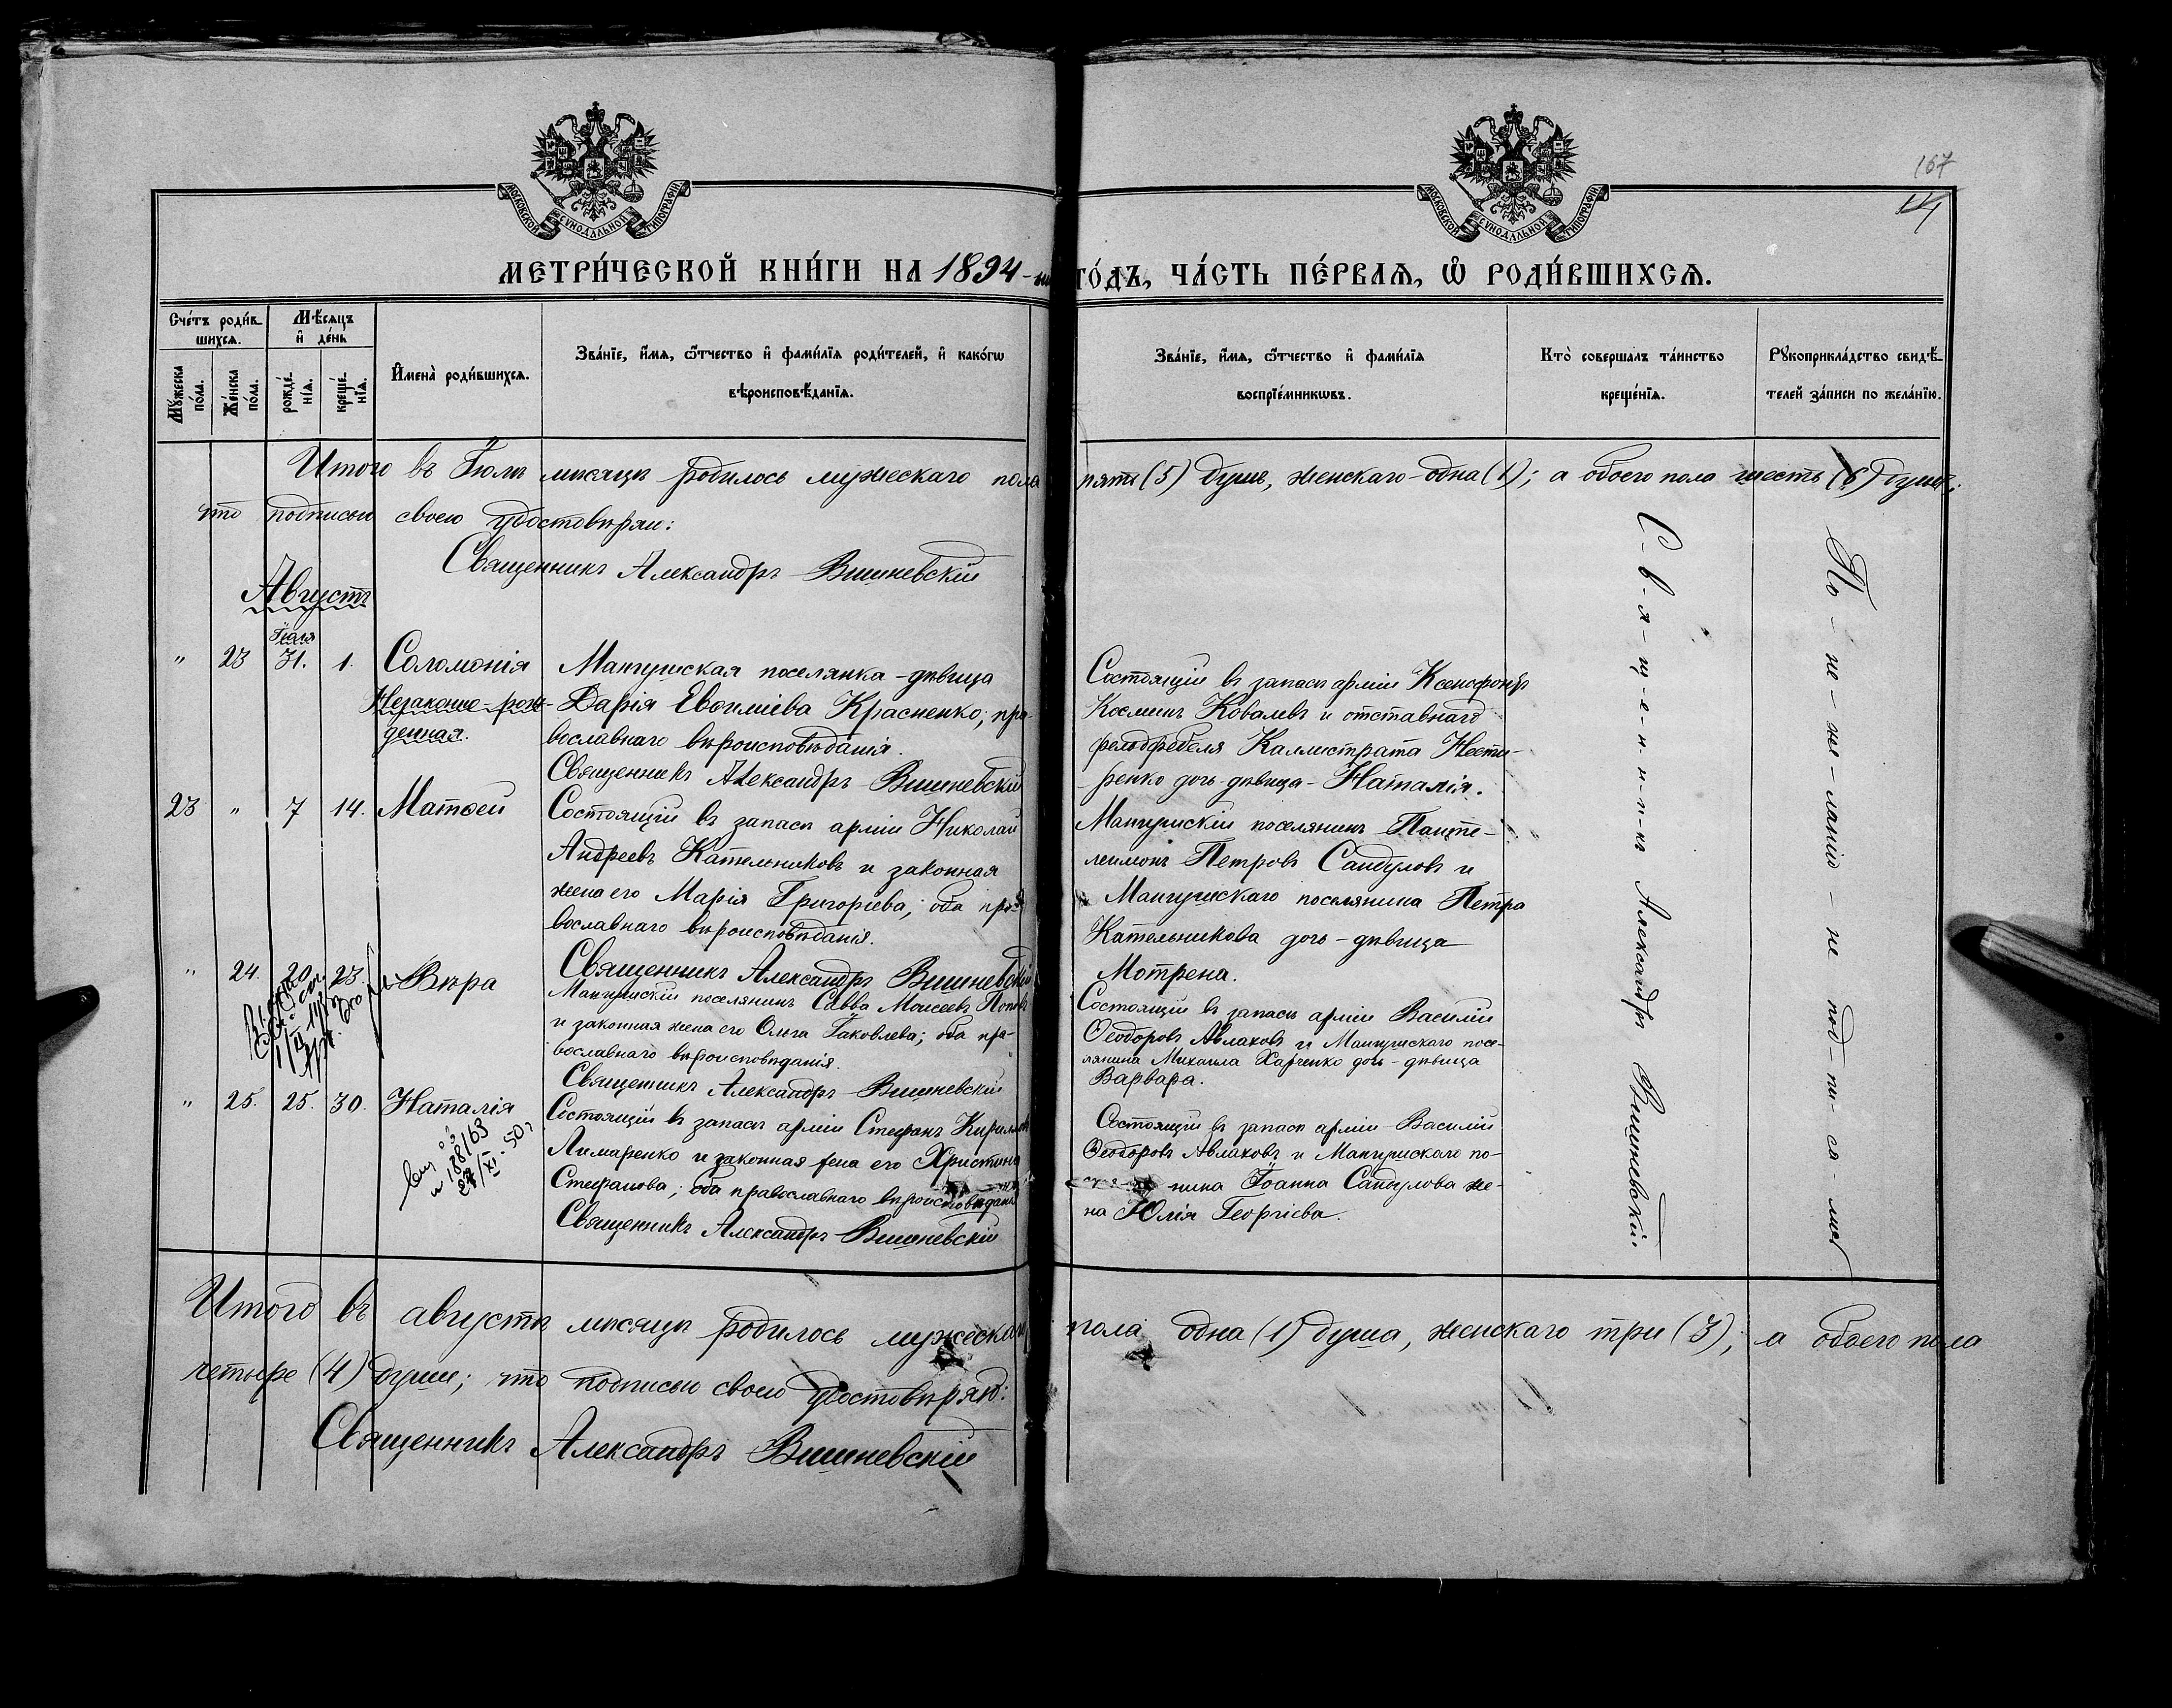 МОСКОВСКОЙ СѴНОДАЛЬНОЙ ТИПОГРАФІИ
МОСКОВСКОЙ СѴНОДАЛЬНОЙ ТИПОГРАФІИ
167
МЕТРИ́ЧЕСКОЙ КНИ́ГИ НА 1894 ГО́ДЪ, ЧА́СТЬ ПЕ́РВАѦ, Ѡ҆ РОДИ́ВШИХСѦ.
Сче́тъ роди́в-
шихсѧ.
Мꙋ́жеска по́ла.
Же́нска по́ла.
Мѣ́сѧцъ
и҆ де́нь
рожде́-
нїѧ.
креще́-
нїѧ.
И҆мена̀ роди́вшихсѧ.
Зва́нїе, и҆́мѧ, ѻ҆́тчество и҆ фами́лїѧ роди́телей, и҆ како́гѡ
вѣроисповѣ́данїѧ.
Зва́нїе, и҆́мѧ, ѻ҆́тчество и҆ фами́лїѧ
воспрїе́мникѡвъ.
Кто̀ соверша́лъ та́инство
креще́нїѧ.
Рꙋкоприкла́дство свидѣ́-
телей за́писи по жела́нїю.
Итого въ Іюлѣ мѣсяцѣ родилось мужескаго пола пять (5) душъ, женскаго - одна (1); а обоего пола шесть (6) душъ;
что подписью своею удостовѣряю:
Священникъ Александръ Вишневскій
Августъ
" 23 Іюля 31. 1. Соломонія
Незаконно-рож-
денная.
Мангушская поселянка-дѣвица
Дарія Евѳиміева Красненко; пра-
вославнаго вѣроисповѣданія.
Священникъ Александръ Вишневскій
Состоящій въ запасѣ арміи Ксенофонтъ
Косминъ Ковалевъ и отставнаго
фельдфебеля Каллистрата Несте-
ренко дочь-дѣвица - Наталія.
23 " 7 14. Матѳей
Состоящій въ запасѣ арміи Николай
Андреевъ Кательниковъ и законная
жена его Марія Григоріева; оба пра-
вославнаго вѣроисповѣданія.
Священникъ Александръ Вишневскій
Мангушскій поселянинъ Панте-
леимонъ Петровъ Сандуловъ и
Мангушскаго поселянина Петра
Кательникова дочь-дѣвица
Мотрена.
" 24. 20. 23. Вѣра
Мангушскій поселянинъ Савва Моисеевъ Поповъ
и законная жена его Ольга Іаковлева; оба пра-
вославнаго вѣроисповѣданія.
Священникъ Александръ Вишневскій
Состоящій въ запасѣ арміи Василій
Ѳеодоровъ Авлаховъ и Мангушскаго посе-
лянина Михаила Харченко дочь-дѣвица
Варвара.
" 25. 25. 30. Наталія
Состоящій въ запасѣ арміи Стефанъ Кирилловъ
Лимаренко и законная жена его Христина
Стефанова; оба православнаго вѣроисповѣданія
Священникъ Александръ Вишневскій
Состоящій въ запасѣ арміи Василій
Ѳеодоровъ Авлаховъ и Мангушскаго по-
нина Іоанна Сандулова же-
на Юлія Георгіева.
С-в-я-щ-е-н-н-и-къ Александръ Вишневскій
По-же-ла-нію-не под-пи-са-лись
Итого въ августѣ мѣсяцѣ родилось мужескаго пола одна (1) душа, женскаго три (3); а обоего пола
четыре (4) души; что подписью своею удостовѣряю:
Священникъ Александръ Вишневскій